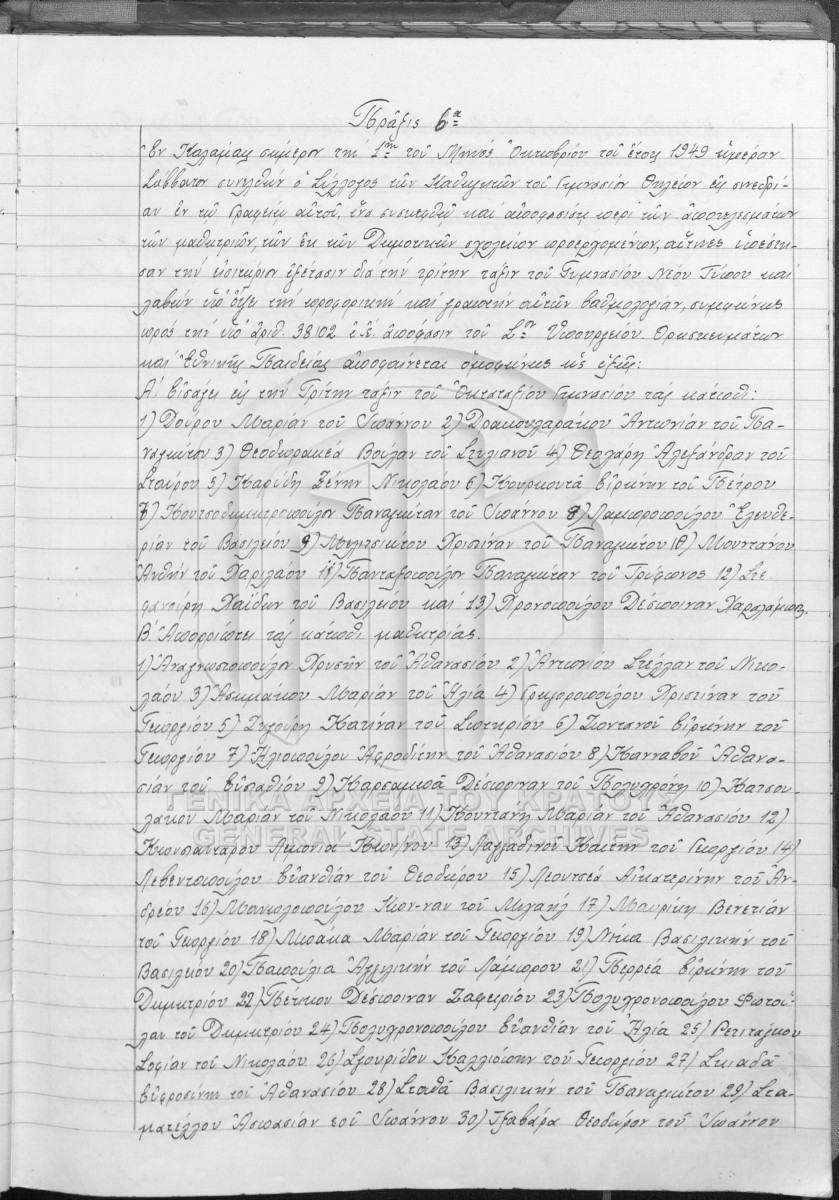 Πρᾶξις 6η
Ἐν Καλάμαις σήμερον τῇ 1ῃ τοῦ Μηνός Ὀκτωβρίου τοῦ ἔτους 1949 ἡμέραν
Σάββατον συνελθών ὁ Σύλλογος τῶν Καθηγητῶν τοῦ Γυμνασίου Θηλέων εἰς συνεδρί-
αν ἐν τῷ Γραφείῳ αὐτοῦ, ἵνα συσκεφθῇ καί ἀποφασίσῃ περί τῶν ἀποτελεσμάτων
τῶν μαθητριῶν, τῶν ἐκ τῶν Δημοτικῶν σχολείων προερχομένων, αἵτινες ὑπέστη-
σαν τήν εἰσιτήριον ἐξέτασιν διά τήν τρίτην τάξιν τοῦ Γυμνασίου Νέου Τύπου καί
λαβών ὑπ' ὄψει τήν προφορικήν καί γραπτήν αὐτῶν βαθμολογίαν, συμφώνως
πρός τήν ὑπ' ἀριθ. 38102 ἀπόφασιν τοῦ Σ. Ὑπουργείου Θρησκευμάτων
καί Ἐθνικῆς Παιδείας ἀποφαίνεται ὁμοφώνως ὡς ἑξῆς:
Α'. Εἰσάγει εἰς τήν Τρίτην τάξιν τοῦ Ὀκταταξίου Γυμνασίου τάς κάτωθι:
1) Δούρου Μαρίαν τοῦ Ἰωάννου 2) Δρακουλαράκου Ἀντωνίαν τοῦ Πα-
ναγιώτου 3) Θεοδωρακέα Βούλαν τοῦ Στυλιανοῦ 4) Θεολάρη Ἀλεξάνδραν τοῦ
Σταύρου 5) Καρύδη Ζένην Νικολάου 6) Κουρκουτᾶ Εἰρήνην τοῦ Πέτρου
7) Κουτσοδημητροπούλου Παναγιώταν τοῦ Ἰωάννου 8) Λαμπροπούλου Ἐλευθε-
ρίαν τοῦ Βασιλείου 9) Μελισσιώτου Χριστίναν τοῦ Παναγιώτου 10) Μουντάνου
Ἀνθήν τοῦ Χαριλάου 11) Πανταζοπούλου Παναγιώταν τοῦ Τρύφωνος 12) Στε-
φανούρη Χαΐδων τοῦ Βασιλείου καί 13) Χρονοπούλου Δέσποιναν Χαραλάμπους.
Β'. Ἀπορρίπτει τάς κάτωθι μαθητρίας.
1) Ἀναγνωστοπούλου Χρυσῆν τοῦ Ἀθανασίου 2) Ἀντωνίου Στέλλαν τοῦ Νικο-
λάου 3) Ἀσημάκου Μαρίαν τοῦ Ἠλία 4) Γρηγοροπούλου Χριστίναν τοῦ
Γεωργίου 5) Ζυγούρη Κατίναν τοῦ Σωτηρίου 6) Ζοντανοῦ Εἰρήνην τοῦ
Γεωργίου 7) Ἠλιοπούλου Ἀφροδίτην τοῦ Ἀθανασίου 8) Κανναβοῦ Ἀθανα-
σίαν τοῦ Εὐσταθίου 9) Καρσαμπᾶ Δέσποιναν τοῦ Πολυχρόνη 10) Κατσου-
λάκου Μαρίαν τοῦ Νικολάου 11) Κουντάνη Μαρίαν τοῦ Ἀθανασίου 12)
Κωνσανταρου Λεμονιά Κων/νου 13) Λαγγαδινοῦ Καίτην τοῦ Γεωργίου 14)
Λεβεντοπούλου Εὐανθίαν τοῦ Θεοδώρου 15) Λεουτσέα Αἰκατερίνην τοῦ Ἀν-
δρέου 16) Μανωλοπούλου Κων-ναν τοῦ Μιχαήλ 17) Μαυρίκη Βενετίαν
τοῦ Γεωργίου 18) Μπάκα Μαρίαν τοῦ Γεωργίου 19) Νίκα Βασιλικήν τοῦ
Βασιλείου 20) Παπούλια Ἀγγελικήν τοῦ Λάμπρου 21) Περρέα Εἰρήνην τοῦ
Δημητρίου 22) Πέτκου Δέσποιναν Ζαφειρίου 23) Πολυχρονοπούλου Φωτού-
λαν τοῦ Δημητρίου 24) Πολυχρονοπούλου Εὐανθίαν τοῦ Ἠλία 25) Ρετιτάγκου
Σοφίαν τοῦ Νικολάου 26) Σγουρίδου Καλλιόπην τοῦ Γεωργίου 27) Σκιαδᾶ
Εὐφροσύνην τοῦ Ἀθανασίου 28) Σταθᾶ Βασιλικήν τοῦ Παναγιώτου 29) Στα-
ματέλλου Ἀσπασίαν τοῦ Ἰωάννου 30) Τζαβάρα Θεοδώραν τοῦ Ἰωάννου
ΓΕΝΙΚΑ ΑΡΧΕΙΑ ΤΟΥ ΚΡΑΤΟΥΣ
GENERAL STATE ARCHIVES